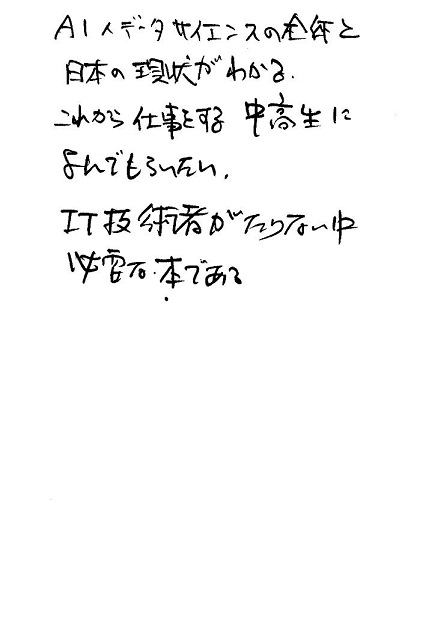 AI、データサイエンスの全体と
日本の現状がわかる.
これから仕事をする中高生に
よんでもらいたい.
IT技術者がたりない中
必要な本である